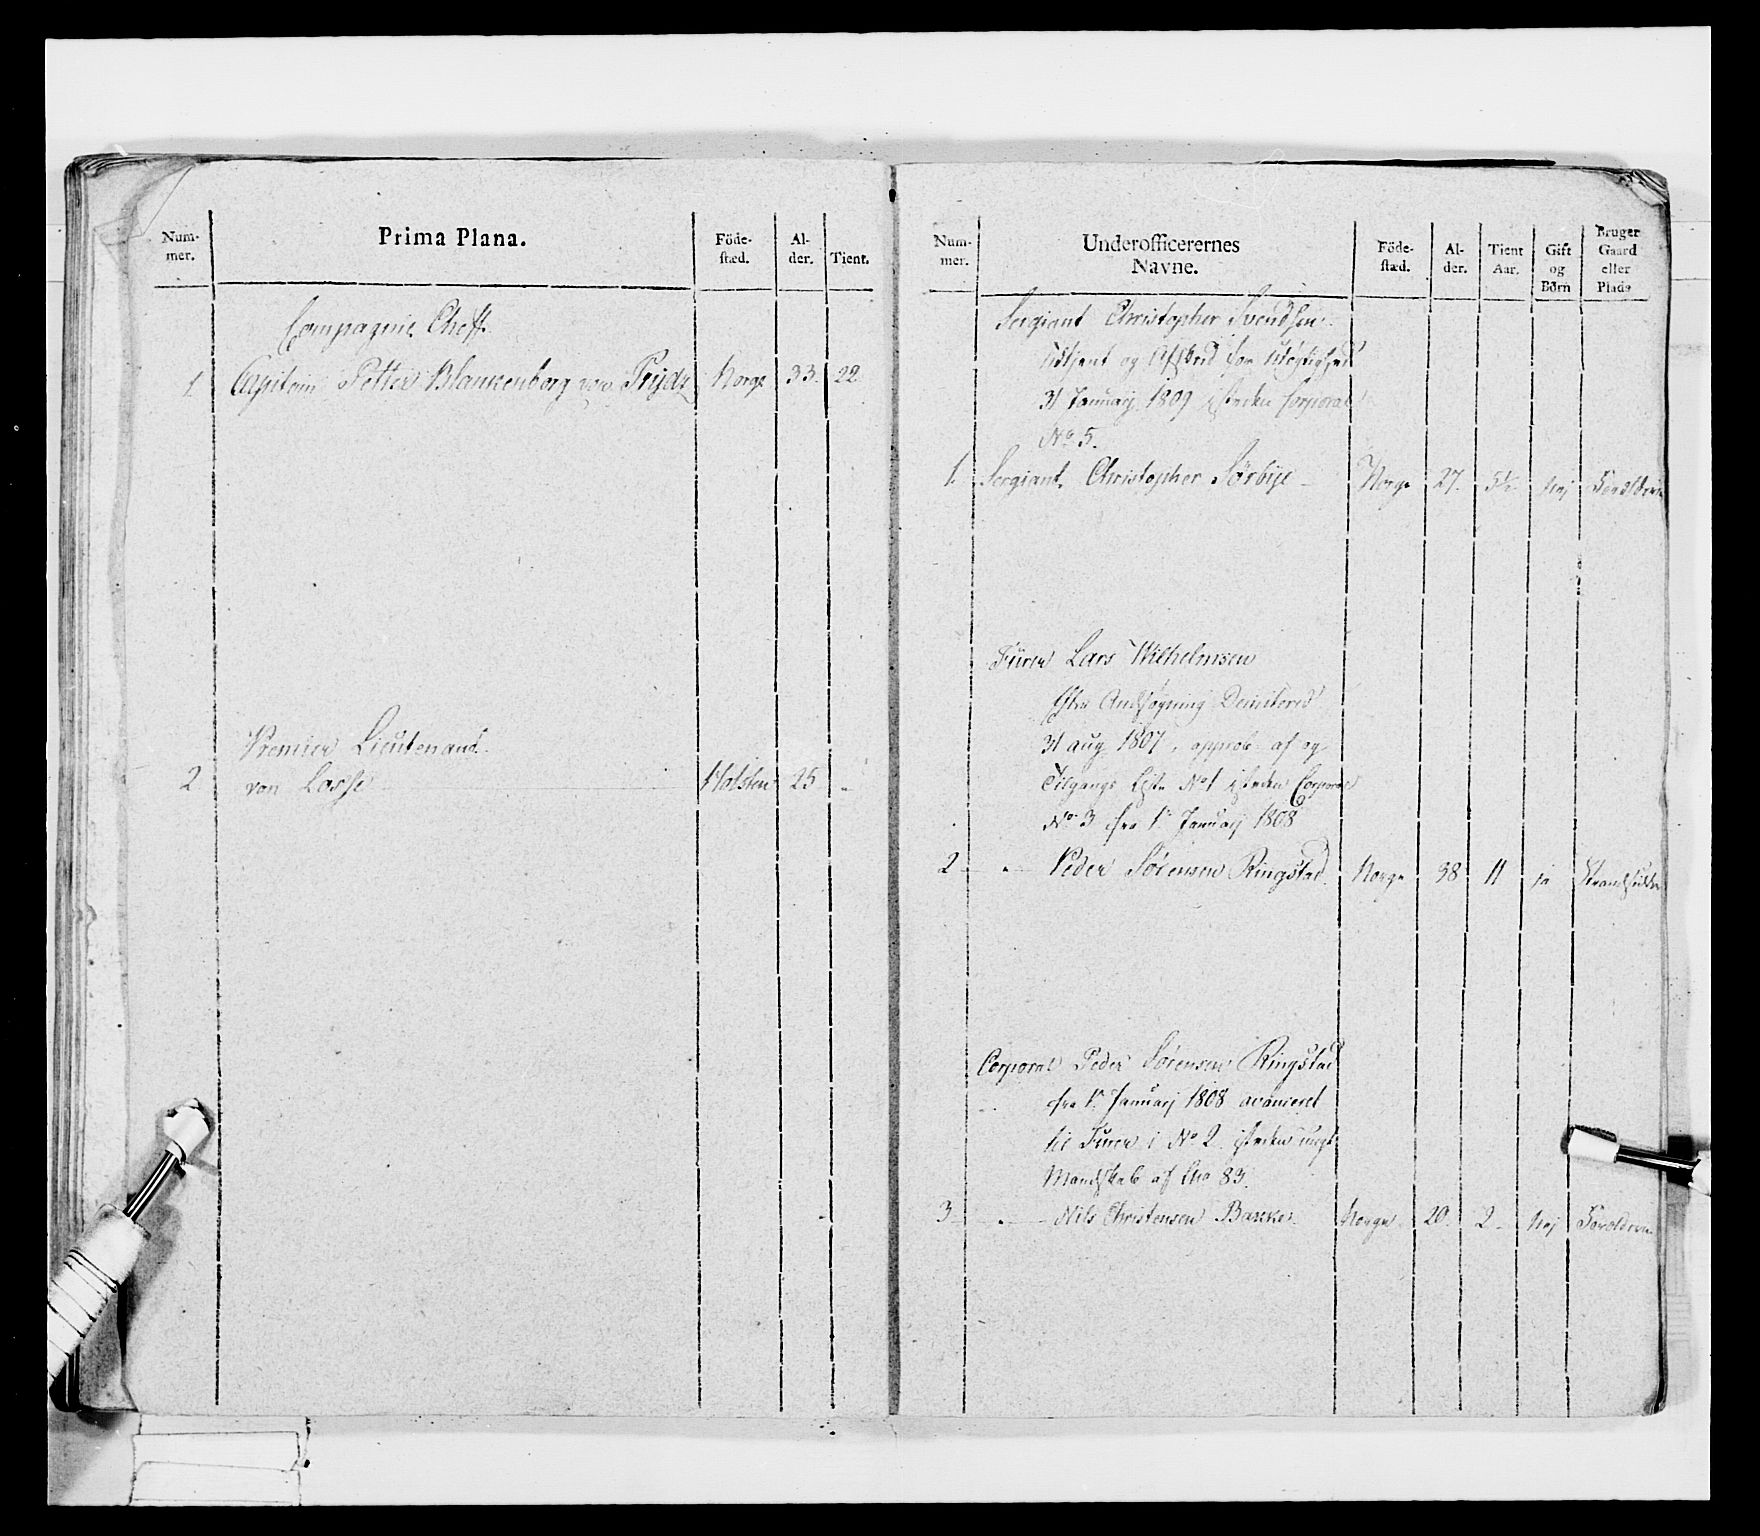 Num-
mer.
Prima Plana.
Föde-
stæd.
Al-
der.
Tient.
Compagnie Cheff.
1. Capitain Petter Blankenborg von Prijdz Norge 33. 22
Premier Lieutenand
2 von Losse Holsten 25 "
Num-
mer.
Underofficerernes
Navne.
Föde-
stæd.
Al-
der.
Tient
Aar.
Gift
og
Börn
Bruger
Gaard
eller
Plads
Sergiant Christopher Svendsen
Udtjent og Afskeed for
31 Januarj 1809 isteden Corporal
No 5.
1. Sergiant Christopher Sörbye Norge 27. 5½ Nej Foreldrene
Furer Lars Wilhelmsen
Efter Andsøgning Dimitered
31 aug 1807, approb. af og
Tilgangs Liste No 1 isteden Corporal
No 3 fra 1. Januarj 1808
2 " Peder Sörensen Ringstad Norge 38 11 ja
Corporal Peder Sörensen Ringstad
fra 1. Januarj 1808 avanceret
til Furer i No 2 isteden ungt
Mandskab af No 83.
3 " Nils Christensen Bakke Norge 20. 2 Nej Foreldrene